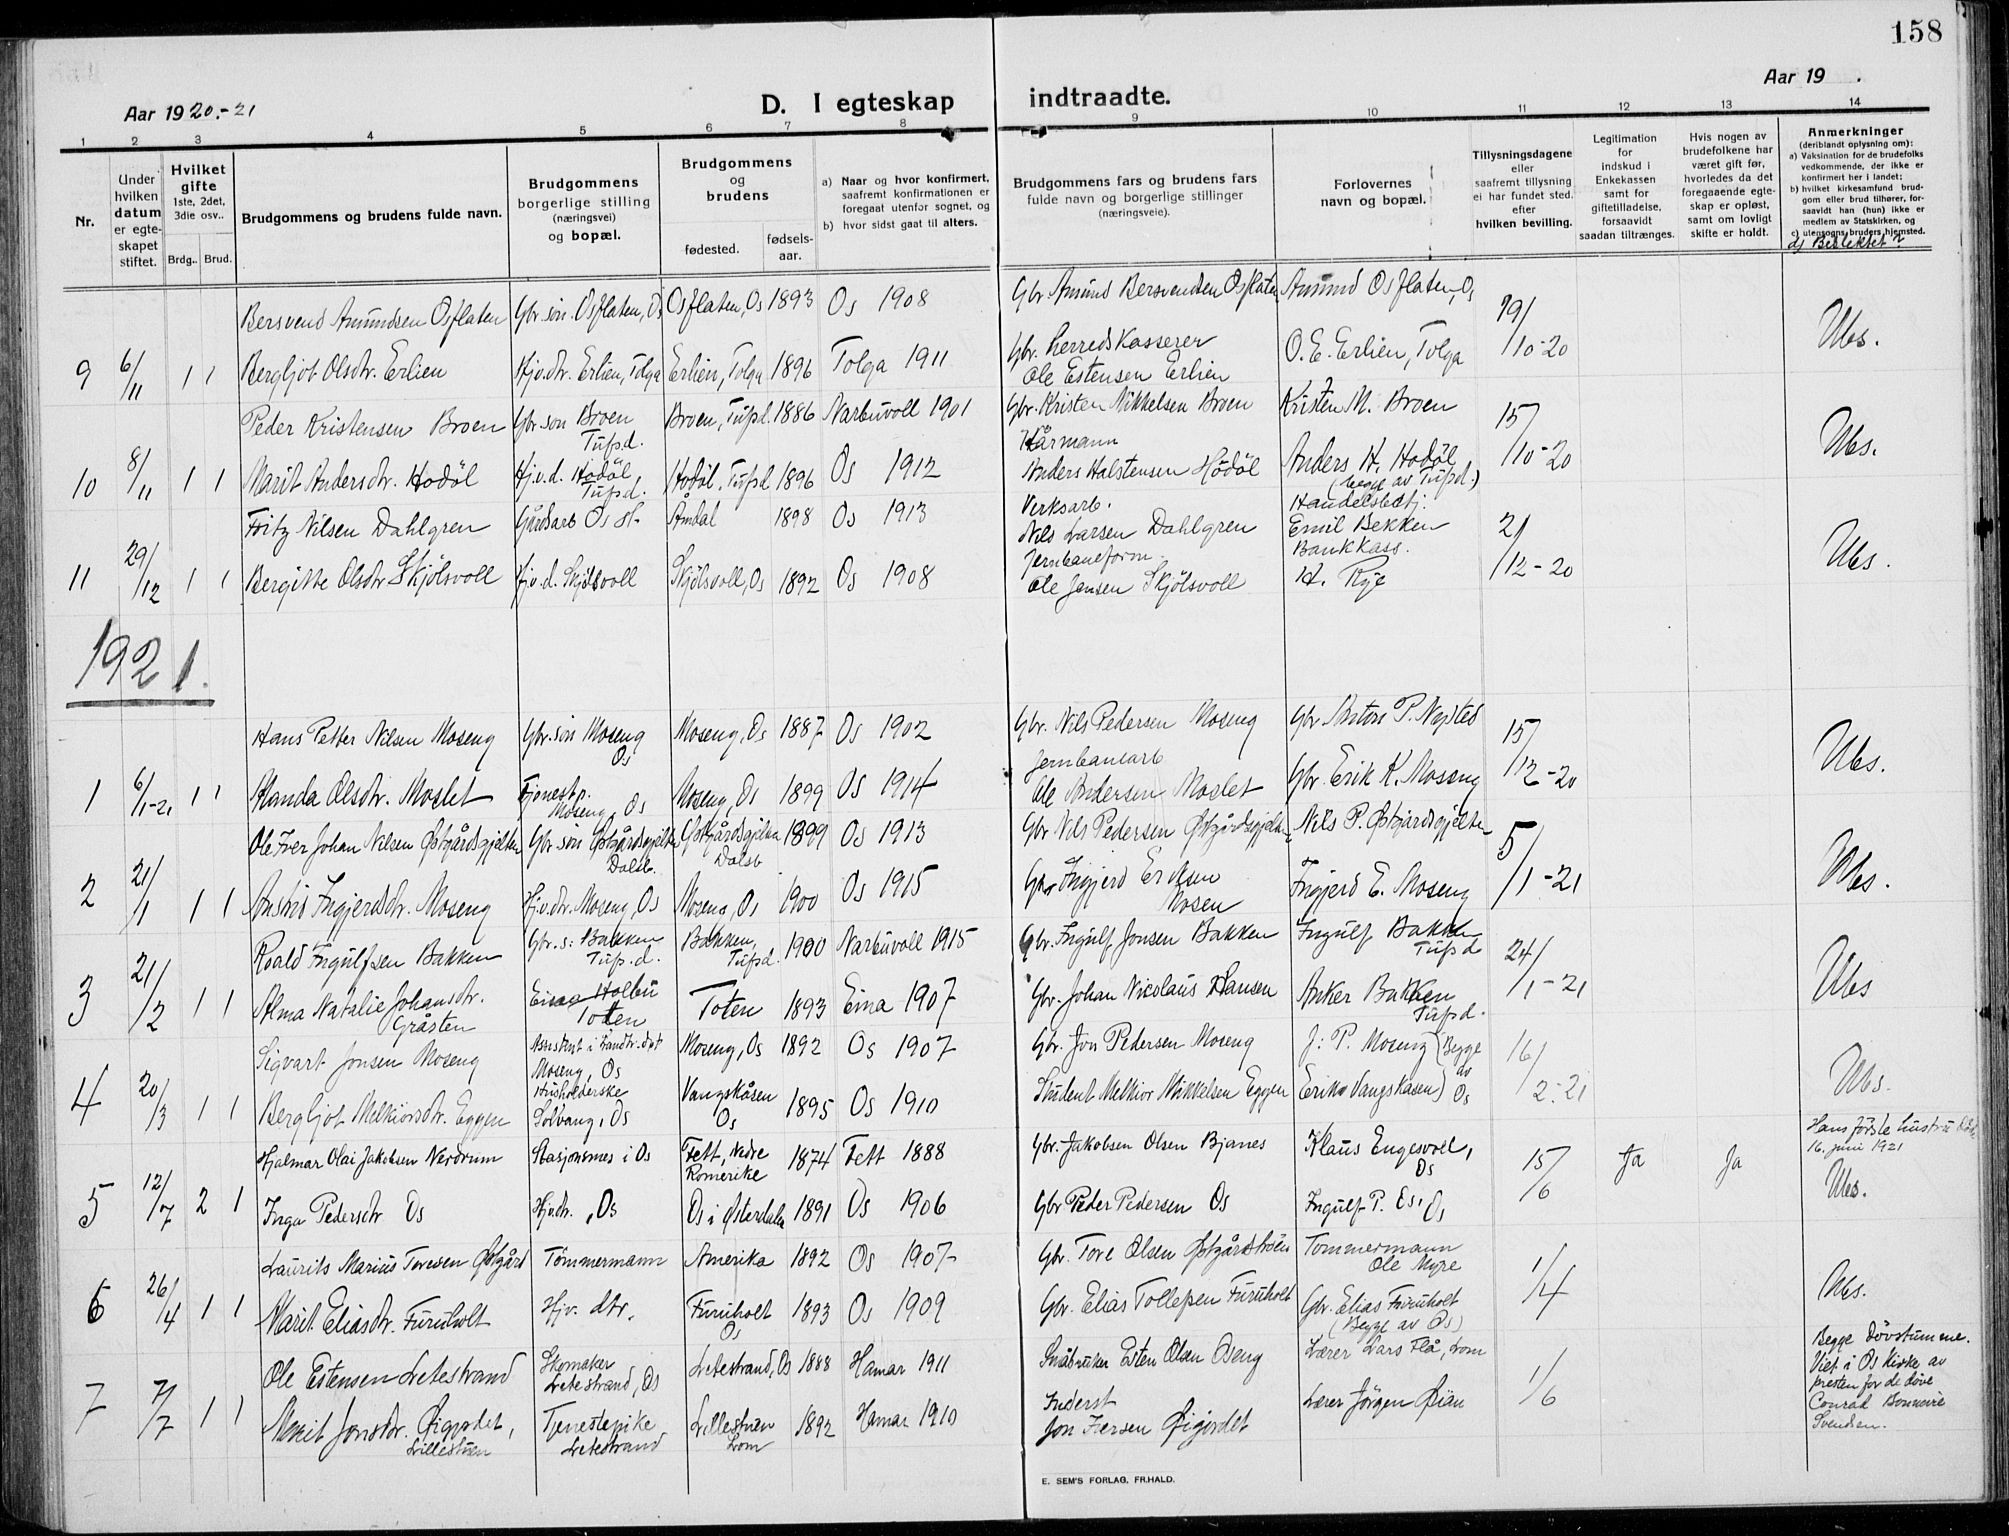 158
Aar 1920.-21
D. I egteskap indtraadte.
Aar 19 .
1 2 3 4 5 6 7 8 9 10 11 12 13 14
Nr.
Under hvilken datum er egteskapet stiftet.
Hvilket gifte 1ste, 2det, 3die osv..
Brdg.. Brud.
Brudgommens og brudens fulde navn.
Brudgommens borgerlige stilling (næringsvei) og bopæl.
Brudgommens og brudens
fødested.
fødselsaar.
a) Naar og hvor konfirmert, saafremt konfirmationen er foregaat utenfor sognet, og
b) hvor sidst gaat til alters.
Brudgommens fars og brudens fars fulde navn og borgerlige stillinger (næringsveie).
Forlovernes navn og bopæl.
Tillysningsdagene eller saafremt tillysning ei har fundet sted. efter hvilken bevilling.
Legitimation for indskud i Enkekassen samt for giftetilladelse, forsaavidt saadan tiltrænges.
Hvis nogen av brudefolkene har været gift før, hvorledes da det foregaaende egteskap er opløst, samt om lovligt skifte er holdt.
Anmerkninger (deriblandt oplysning om):
a) Vaksination for de brudefolks vedkommende, der ikke er konfirmert her i landet;
b) hvilket kirkesamfund brudgom eller brud tilhører, forsaavidt han (hun) ikke er medlem av Statskirken, og
c) utensogns bruders hjemsted.
d) Beslektet?
Bersvend Amundsen Osflaten Gbr.søn. Osflaten, Os Osflaten, Os 1893 Os 1908 Gbr. Amund Bersvendsen Osflaten Amund Osflaten, Os 19/10-20 Ubs.
9 6/11 1 1 Bergljot Olsdtr. Erlien Hjv.dtr. Erlien, Tolga Erlien, Tolga 1896 Tolga 1911 Gbr. herredskasserer Ole Estensen Erlien O. E. Erlien, Tolga
Peder Kristensen Broen Gbr søn Broen Tufsd. Broen, Tufsd. 1886 Narbuvoll 1901 Gbr. Kristen Mikkelsen Broen Kristen M. Broen 15/10-20 Ubs.
10 8/11 1 1 Marit Andersdtr. Hodöl Hj.v.d. Hodöl Tufsd. Hodöl, Tufsd 1896 Os 1912 Kårmann Anders Halstensen Hodöl Anders H. Hodöl (begge av Tufsd.)
Fritz Nilsen Dahlgren Gårdsarb Os st. Åmdal 1898 Os 1913 Verksarb. Nils Larsen Dahlgren Handelsbetj. Emil Bekken 2/12-20 Ubs.
11 29/12 1 1 Bergitte Olsdtr Skjölsvoll Hjv.d. Skjölsvoll Skjölsvoll, Os 1892 Os 1908 Jernbaneform. Ole Jensen Skjölsvoll Bankkass. H. Rye
1921.
Hans Petter Nilsen Moseng Gbr.søn Moseng Os Moseng, Os 1887 Os 1902 Gbr. Nils Pedersen Moseng Gbr. Anton P. Nysted 15/12-20 Ubs.
1 6/1-21 1 1 Olsdtr. Moslet Tjenestp. Moseng, Os Moseng, Os 1899 Os 1914 Jernbanearb Ole Andersen Moslet Gbr. Erik K. Moseng
Ole Iver Johan Nilsen Østgårdsgjelten Gbr søn Østgårdsgjelten Dalsb. Østgårdsgjelten Dalsb 1899 Os 1913 Gbr Nils Pedersen Østgårdsgjelten Nils P. Østgårdsgjelten 5/1-21 Ubs.
2 21/1 1 1 Ingjerdsdtr. Moseng Hjv.dtr. Moseng, Os Moseng, Os 1900 Os 1915 Gbr Ingjerd Eriksen Mosen Ingjerd E. Moseng
Roald Ingulfsen Bakken Gbr.s: Bakken Tufs.d. Bakken, Tufsd. 1900 Narbuvoll 1915 Gbr. Ingulf Jonsen Bakken Ingulf Bakken Tufsd 24/1-21 Ubs
3 21/2 1 1 Alma Natalie Johansdtr. Gråsten Holbu Toten Toten 1893 Eina 1907 Gbr. Johan Nicolaus Hansen Anker Bakken Tufsd.
Sigvart Jonsen Moseng Assistent i Moseng, Os Moseng, Os 1892 Os 1907 Gbr. Jon Pedersen Moseng J: P. Moseng (Begge av Os 16/2-21 Ubs.
4 20/3 1 1 Bergljot Melkiorsdtr. Eggen Husholderske Solvang, Os Vangskåsen Os 1895 Os 1910 Student Melkior Mikkelsen Eggen Erik Vangskåsen)
Hjalmar Olai Jakobsen Nerdrum Stasjonsmes i Os Fett, Nedre Romerike 1874 Fett 1888 Gbr. Jakobsen Olsen Bjanes Klaus Engesvoll, Os 15/6 Ja Ja Hans første hustru død 16. juni 1921 Ubs.
5 12/7 2 1 Inga Pedersdtr Os Hjvdtr., Os Os i Østerdalen 1891 Os 1906 Gbr Peder Pedersen Os Ingulf P. Os, Os
Laurits Marius Toresen Østgård Tömmermann Amerika 1892 Os 1907 Gbr. Tore Olsen Østgårdstrøen Tommermann Ole Myre 1/4 Ubs.
6 26/4 1 1 Marit Eliasdtr. Furuholt Hjv. dtr. Furuholt Os 1893 Os 1909 Gbr. Elias Tollefsen Furuholt Gbr. Elias Furuholt (Begge av Os)
Ole Estensen Letestrand Skomaker Letestrand, Os Letestrand, Os 1888 Hamar 1911 Småbruker Esten Olsen Oseng Lærer Lars Flå, Lom 1/6 Begge døvstumme. Viet i Os Kirke av presten for de døve Conrad Bonnevie Svendsen.
7 7/7 1 1 Marit Jonsdtr. Øigardet, Lillestuen Tjenestepike Letestrand Lillestuen Lom 1892 Hamar 1910 Inderst Jon Iversen Øigjordet Lærer Jörgen Øian
E. SEM'S FORLAG, FR.HALD.